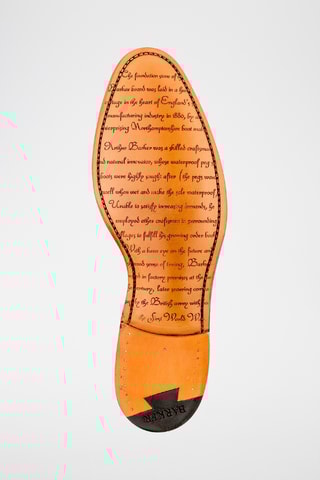 The foundation stone of the
Barker brand was laid in a
village in the heart of England's
manufacturing industry in 1880, by
enterprising Northamptonshire boot
Arthur Barker was a skilled craftsman
and national innovator, whose waterproof peg
boots were highly sought after (the pegs would
swell when wet and make the sole waterproof
Unable to satisfy increasing demands, he
employed other craftsmen in surrounding
villages to fulfill his growing order book
With a keen eye on the future and
sense of timing, Barker
in factory premises at the
century, later securing
by the British army with
the First World W
BARKER